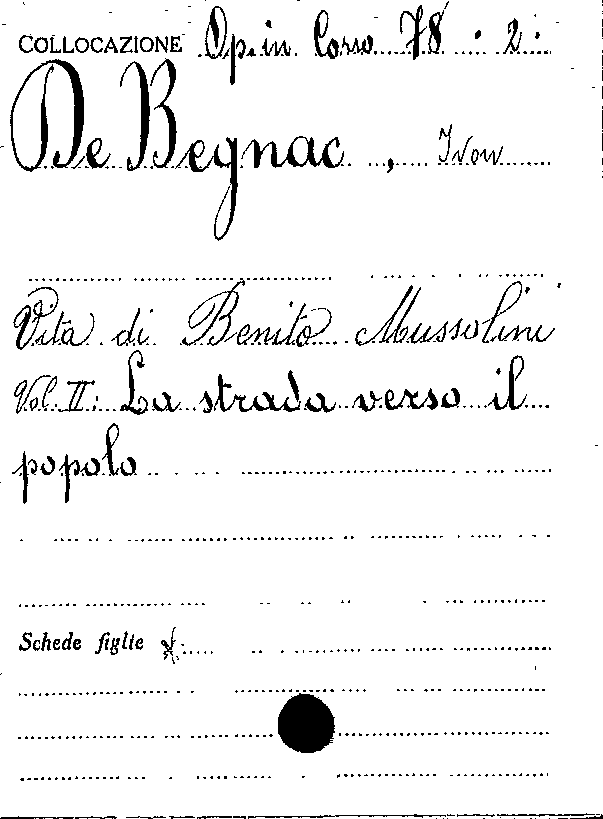 COLLOCAZIONE Op. in Corso 78. 2.
De Begnac, Ivon
Vita di Benito Mussolini
Vol. II: La strada verso il
popolo
Schede figlie